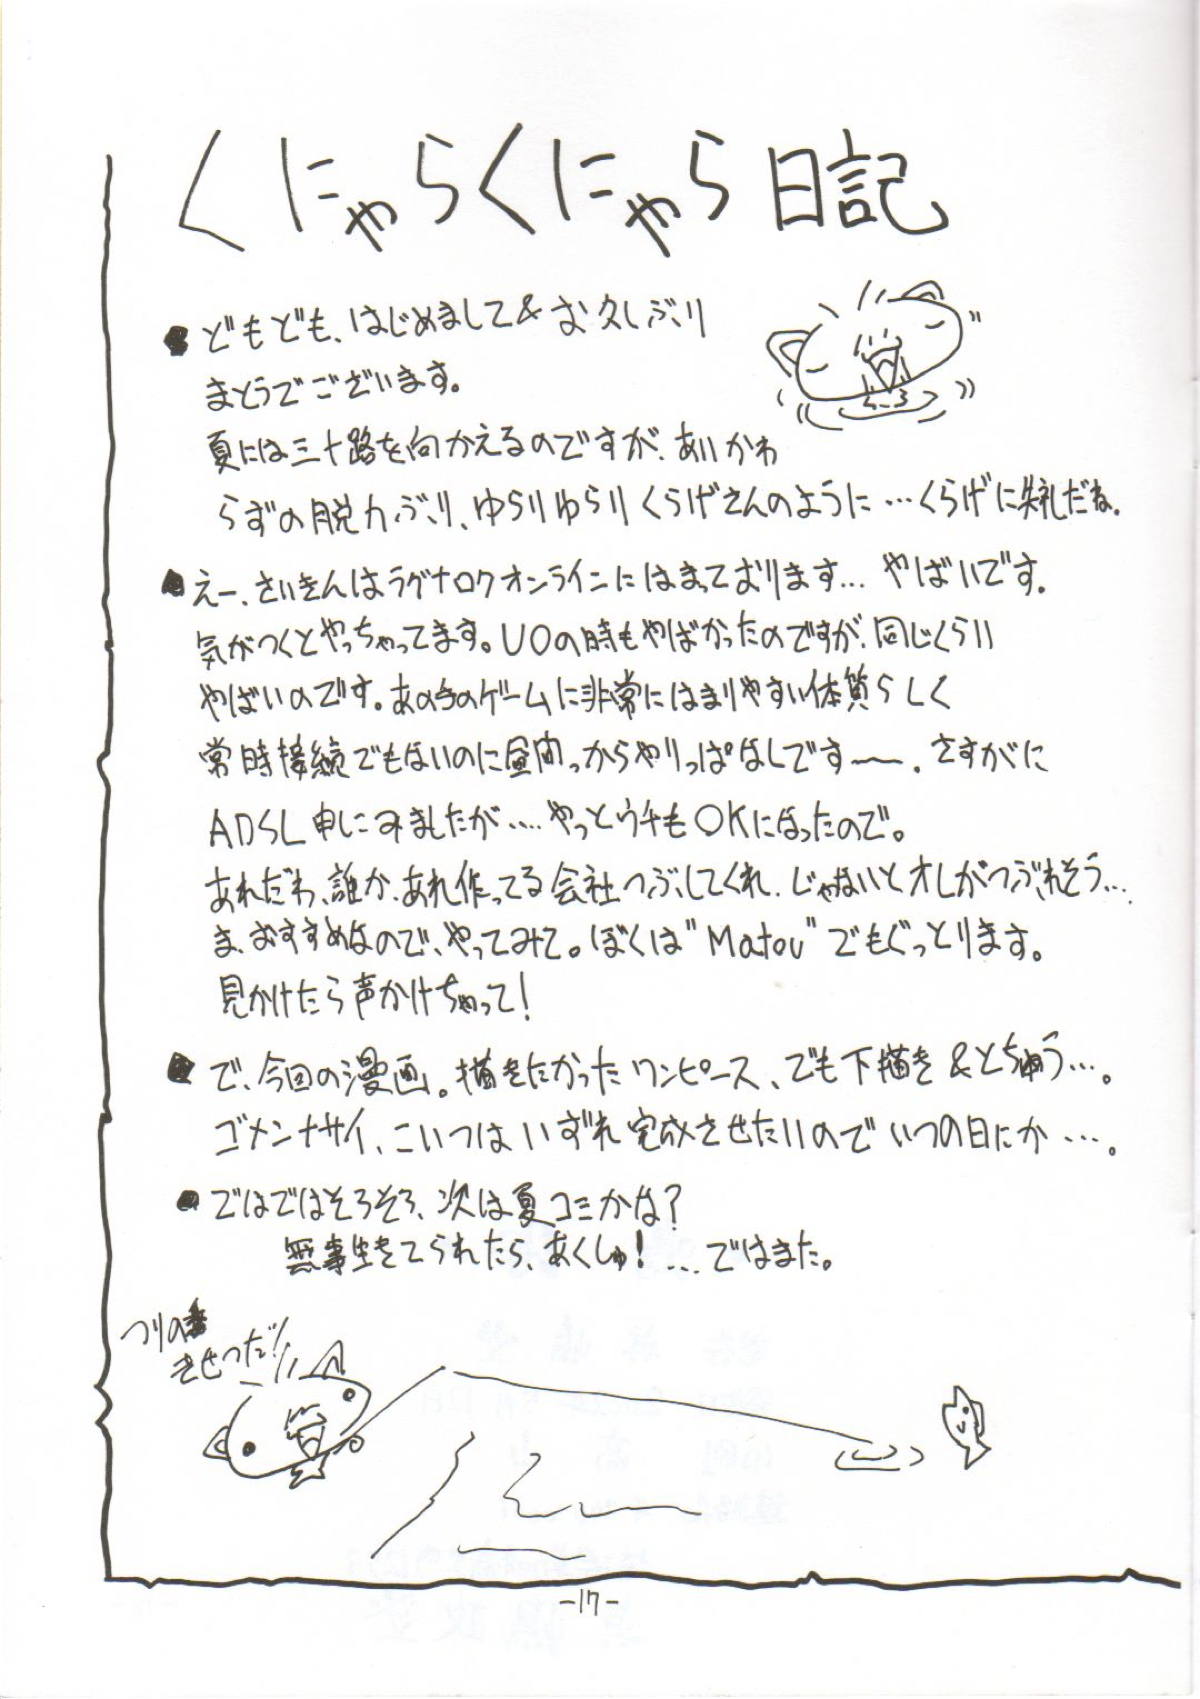 くにゃらくにゃら日記
● どもども、はじめまして&お久しぶり
まとうでございます。
夏には三十路を向かえるのですが、あいかわ
らずの脱力ぶり、ゆらりゆらりくらげさんのように…くらげに失礼だね。
● えー、さいきんはラグナロクオンラインにはまっております… やばいです。
気がつくとやっちゃってます。UOの時もやばかったのですが、同じくらい
やばいのです。あの手のゲームに非常にはまりやすい体質らしく
常時接続でもないのに昼間っからやりっぱなしです〜〜。さすがに
ADSL申しこみましたが…. やっとウチもOKになったので。
あれだわ、誰か、あれ作ってる会社つぶしてくれ、じゃないとオレがつぶれそう…
ま、おすすめなので、やってみて。ぼくは"Matou"でもぐっとります。
見かけたら声かけちゃって!
● で、今回の漫画。描きたかったワンピース、でも下描き&とちゅう…。
ゴメンナサイ、こいつはいずれ完成させたいのでいつの日にか…。
● ではではそろそろ、次は夏コミかな?
無事生きてられたら、あくしゅ!…ではまた。
つりの
きせつだ!!
-17-